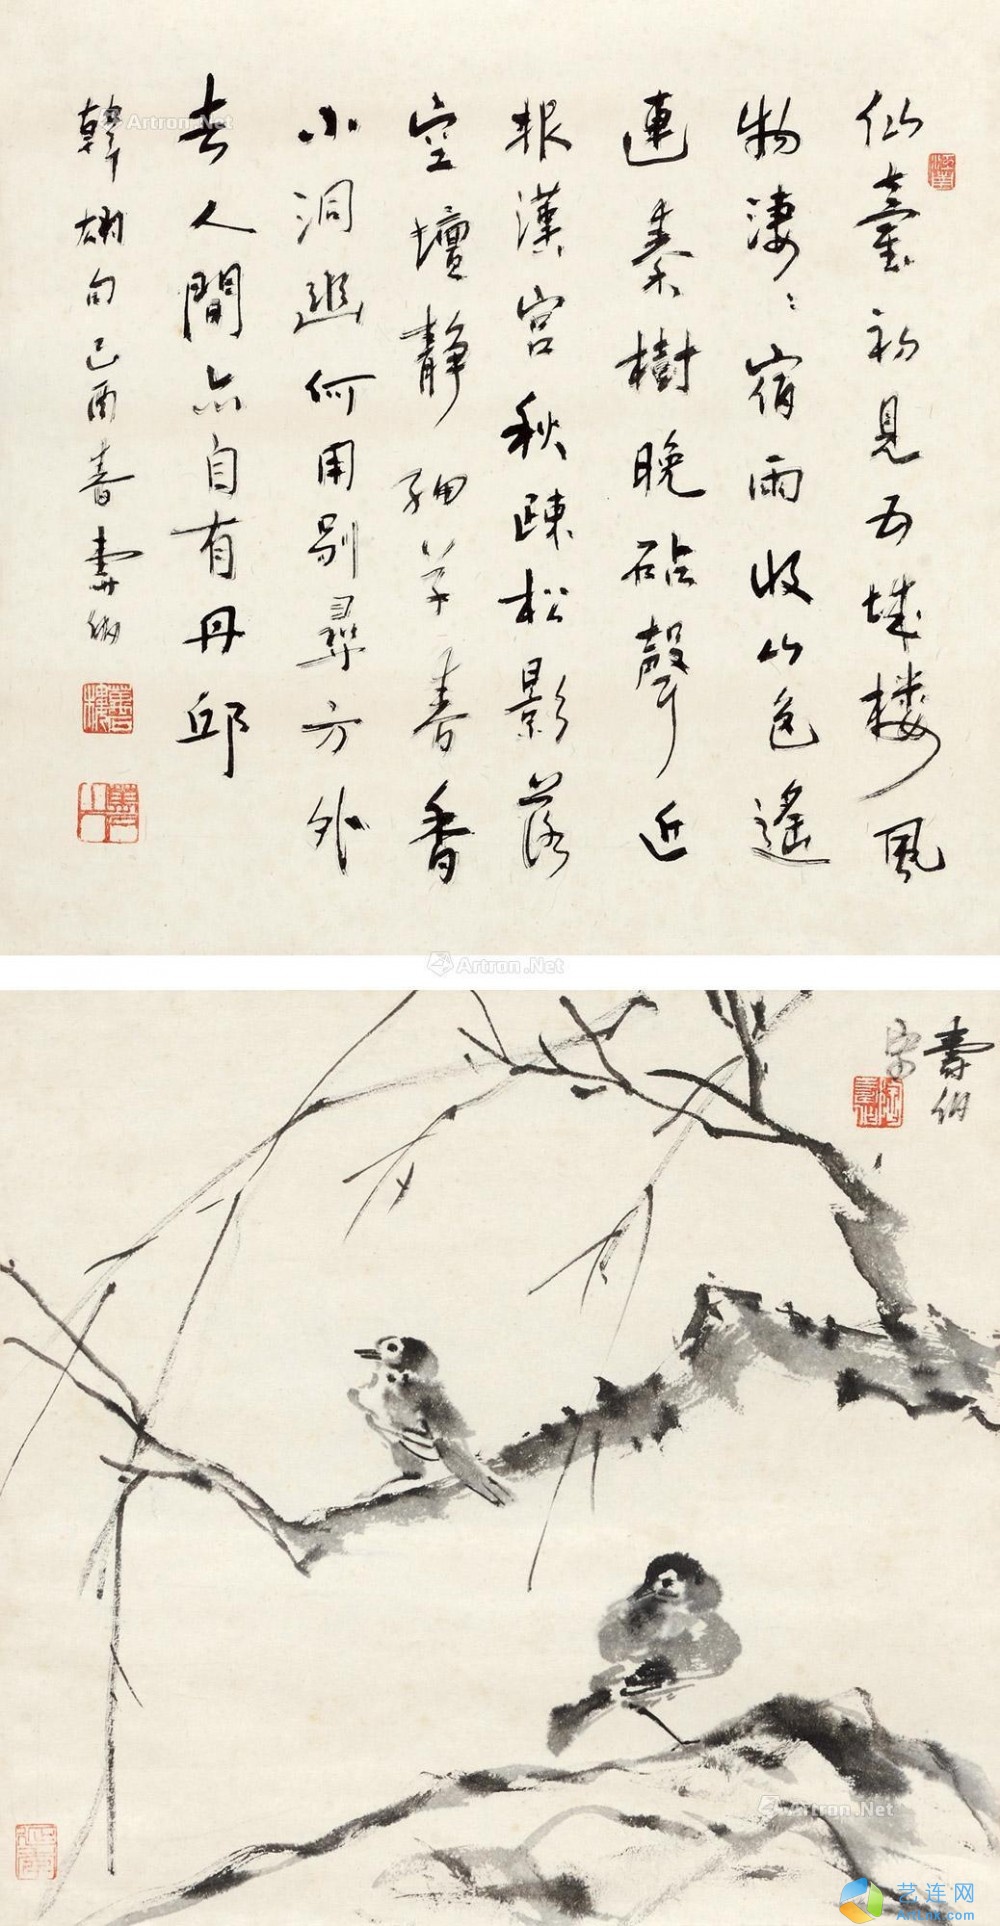 仙臺初見五城楼風
物凄〻宿雨收山色遥
連秦樹晚砧聲近
報漢宫秋疎松影落
空壇靜細草春香
小洞幽何用别尋方外
去人間亦自有丹邱
韓翃句己酉春壽伯
Artron.Net
Artron.Net
壽伯
Artron.Net
艺连网